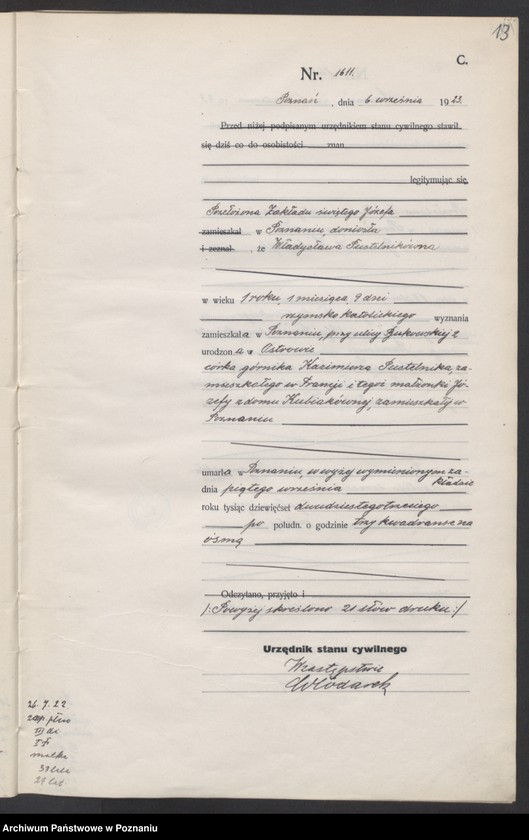 13
C.
Nr. 1611.
Poznań, dnia 6 września 1923.
Przed niżej podpisanym urzędnikiem stanu cywilnego stawił
się dziś co do osobistości znan
legitymując się
Przełożona Zakładu świętego Józefa
zamieszkał w Poznaniu, doniosła
i zeznał, że Władysława Pustelnikówna
w wieku 1 roku, 1 miesiąca, 9 dni
rzymsko katolickiego wyznania
zamieszkała w Poznaniu, przy ulicy Bukowskiej 2
urodzona w Ostrowie
córka górnika Kazimierza Pustelnika, za-
mieszkałego w Francji i tegoż małżonki Jó-
zefy z domu Kubiakównej, zamieszkałej w
Poznaniu
umarła w Poznaniu, w wyżej wymienionym za-
kładzie
dnia piątego września
roku tysiąc dziewięćset dwudziestegotrzeciego
po połudn. o godzinie trzy kwadranse na
ósmą
Odczytano, przyjęto i
/: Powyżej skreślono 21 słów druku :/
Urzędnik stanu cywilnego
W zastępstwie
Włodarek
26.7.22
III
matka
29 lat
Archiwum Państwowe w Poznaniu